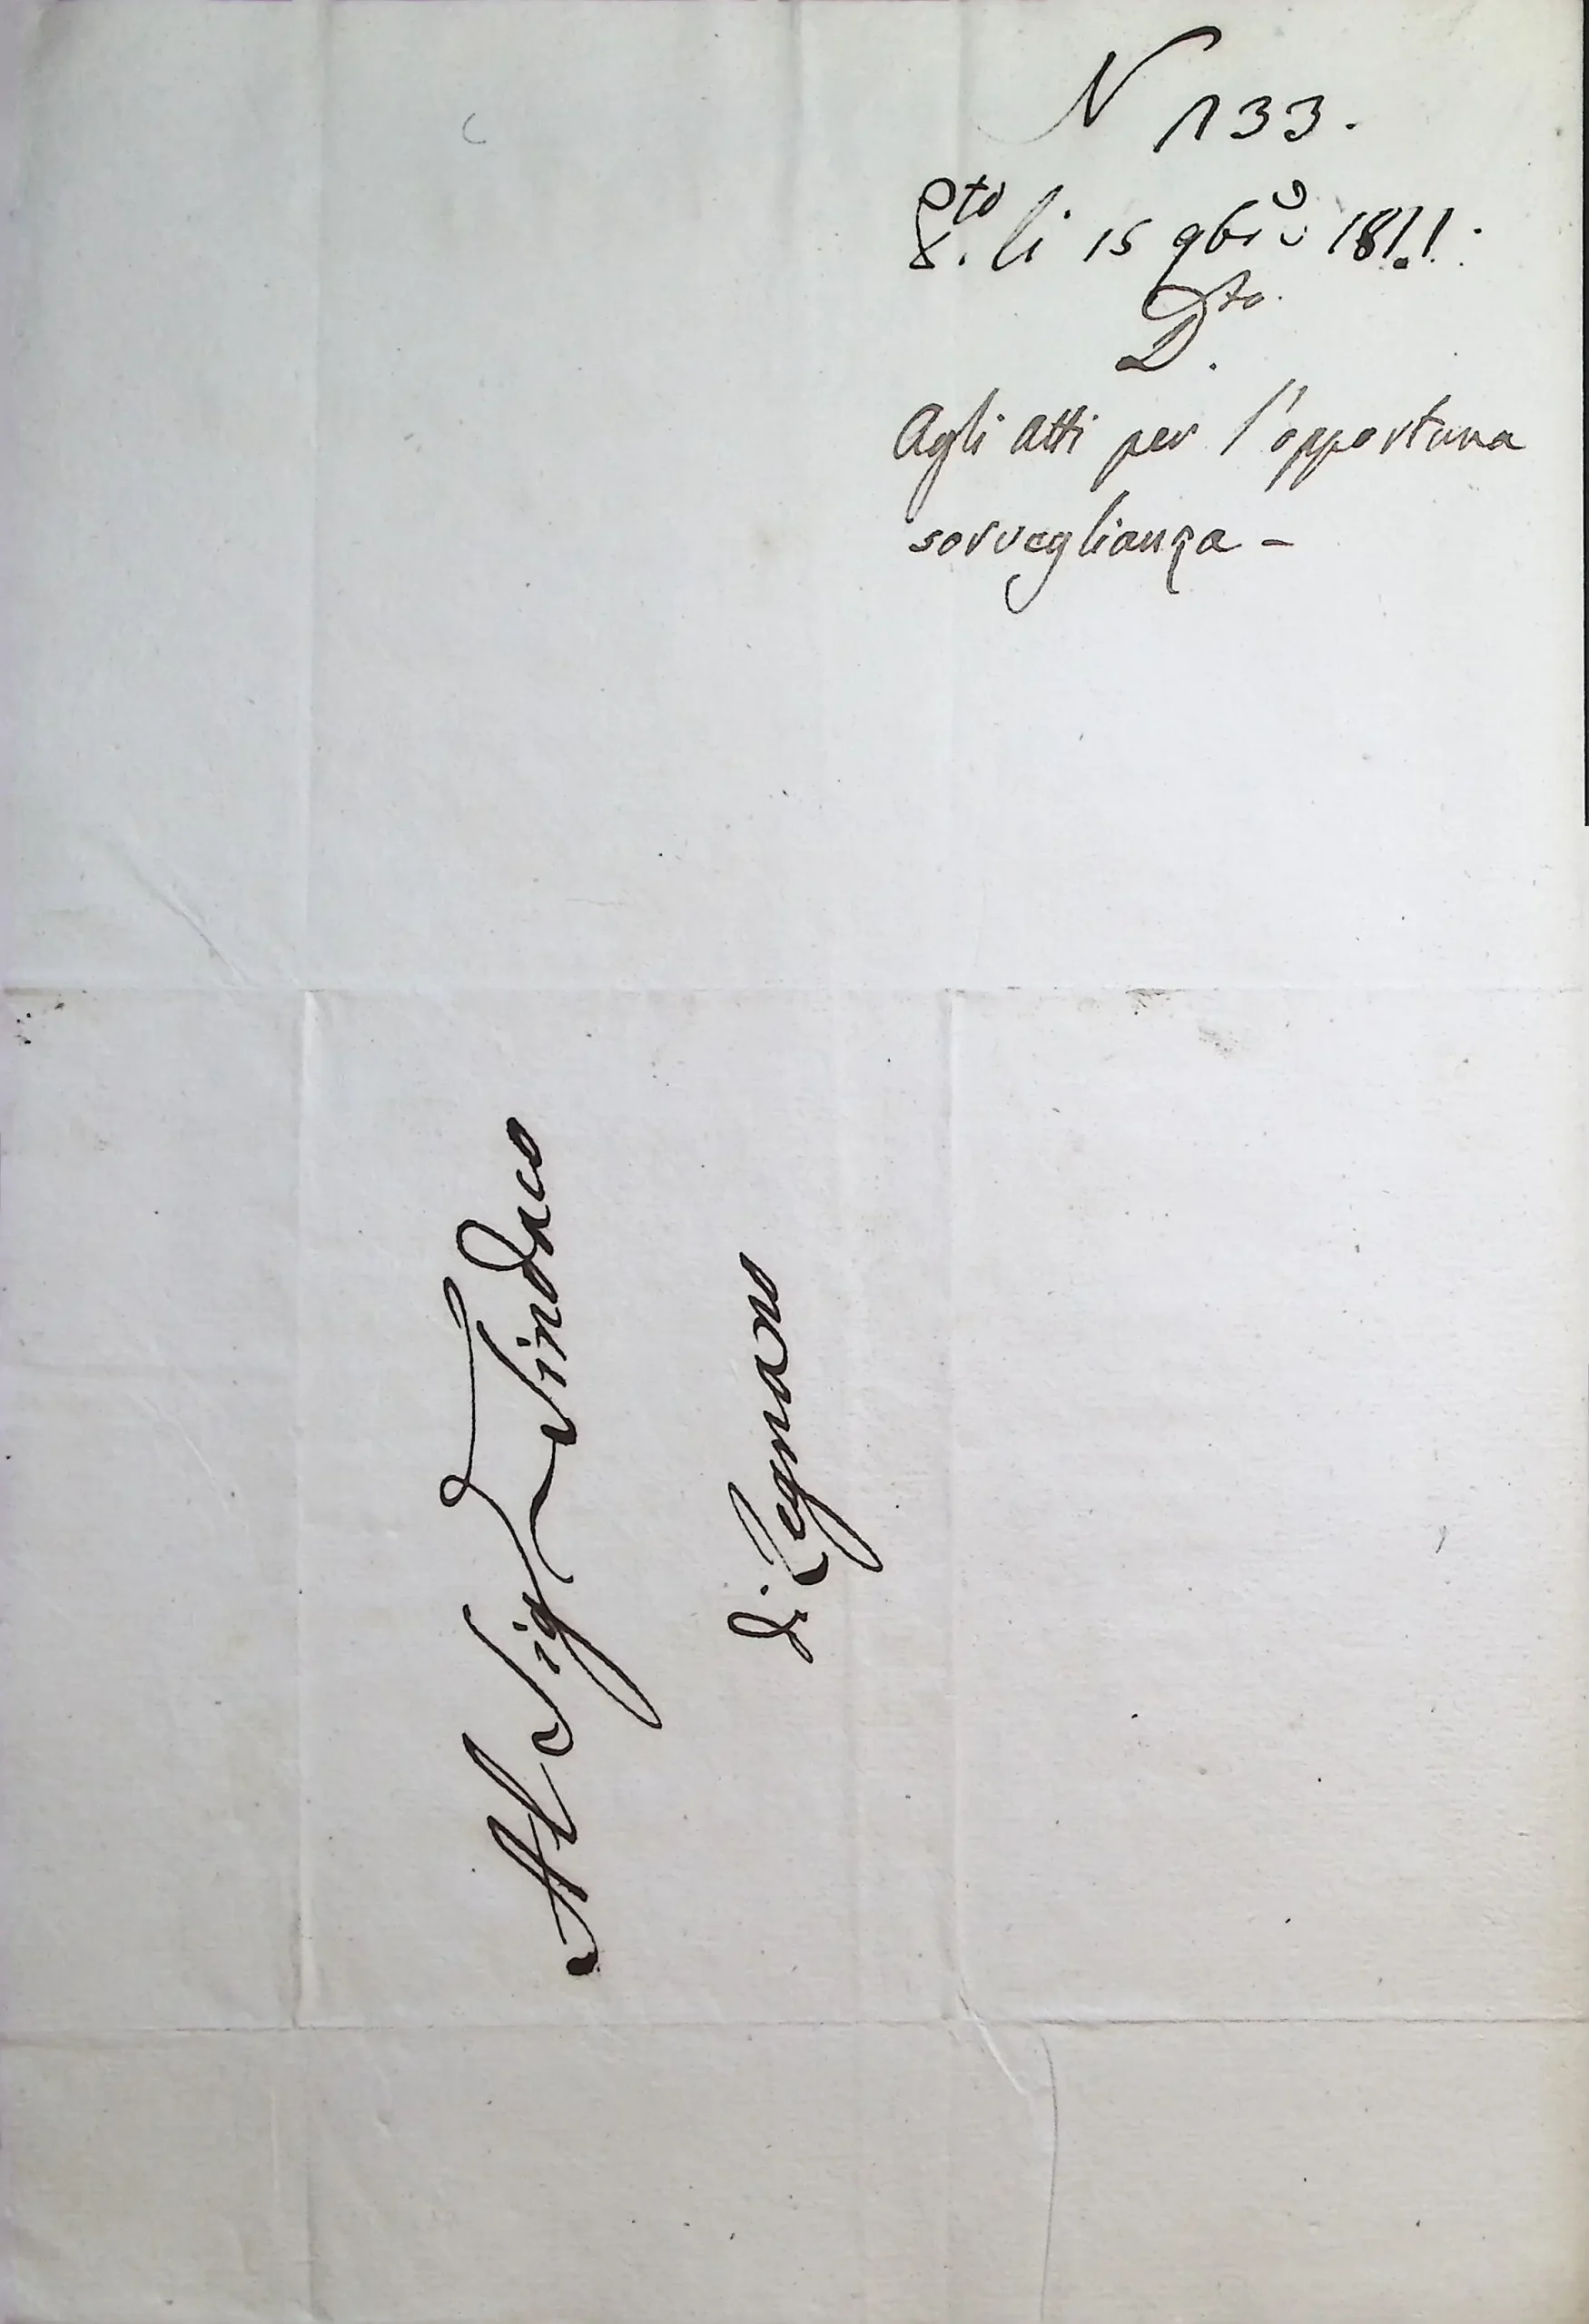 N 133.
Pto. li 15 9bre 1811.
Dto.
Agli atti per l'opportuna
sorveglianza -
Al Sigr Sindaco
di Legnano